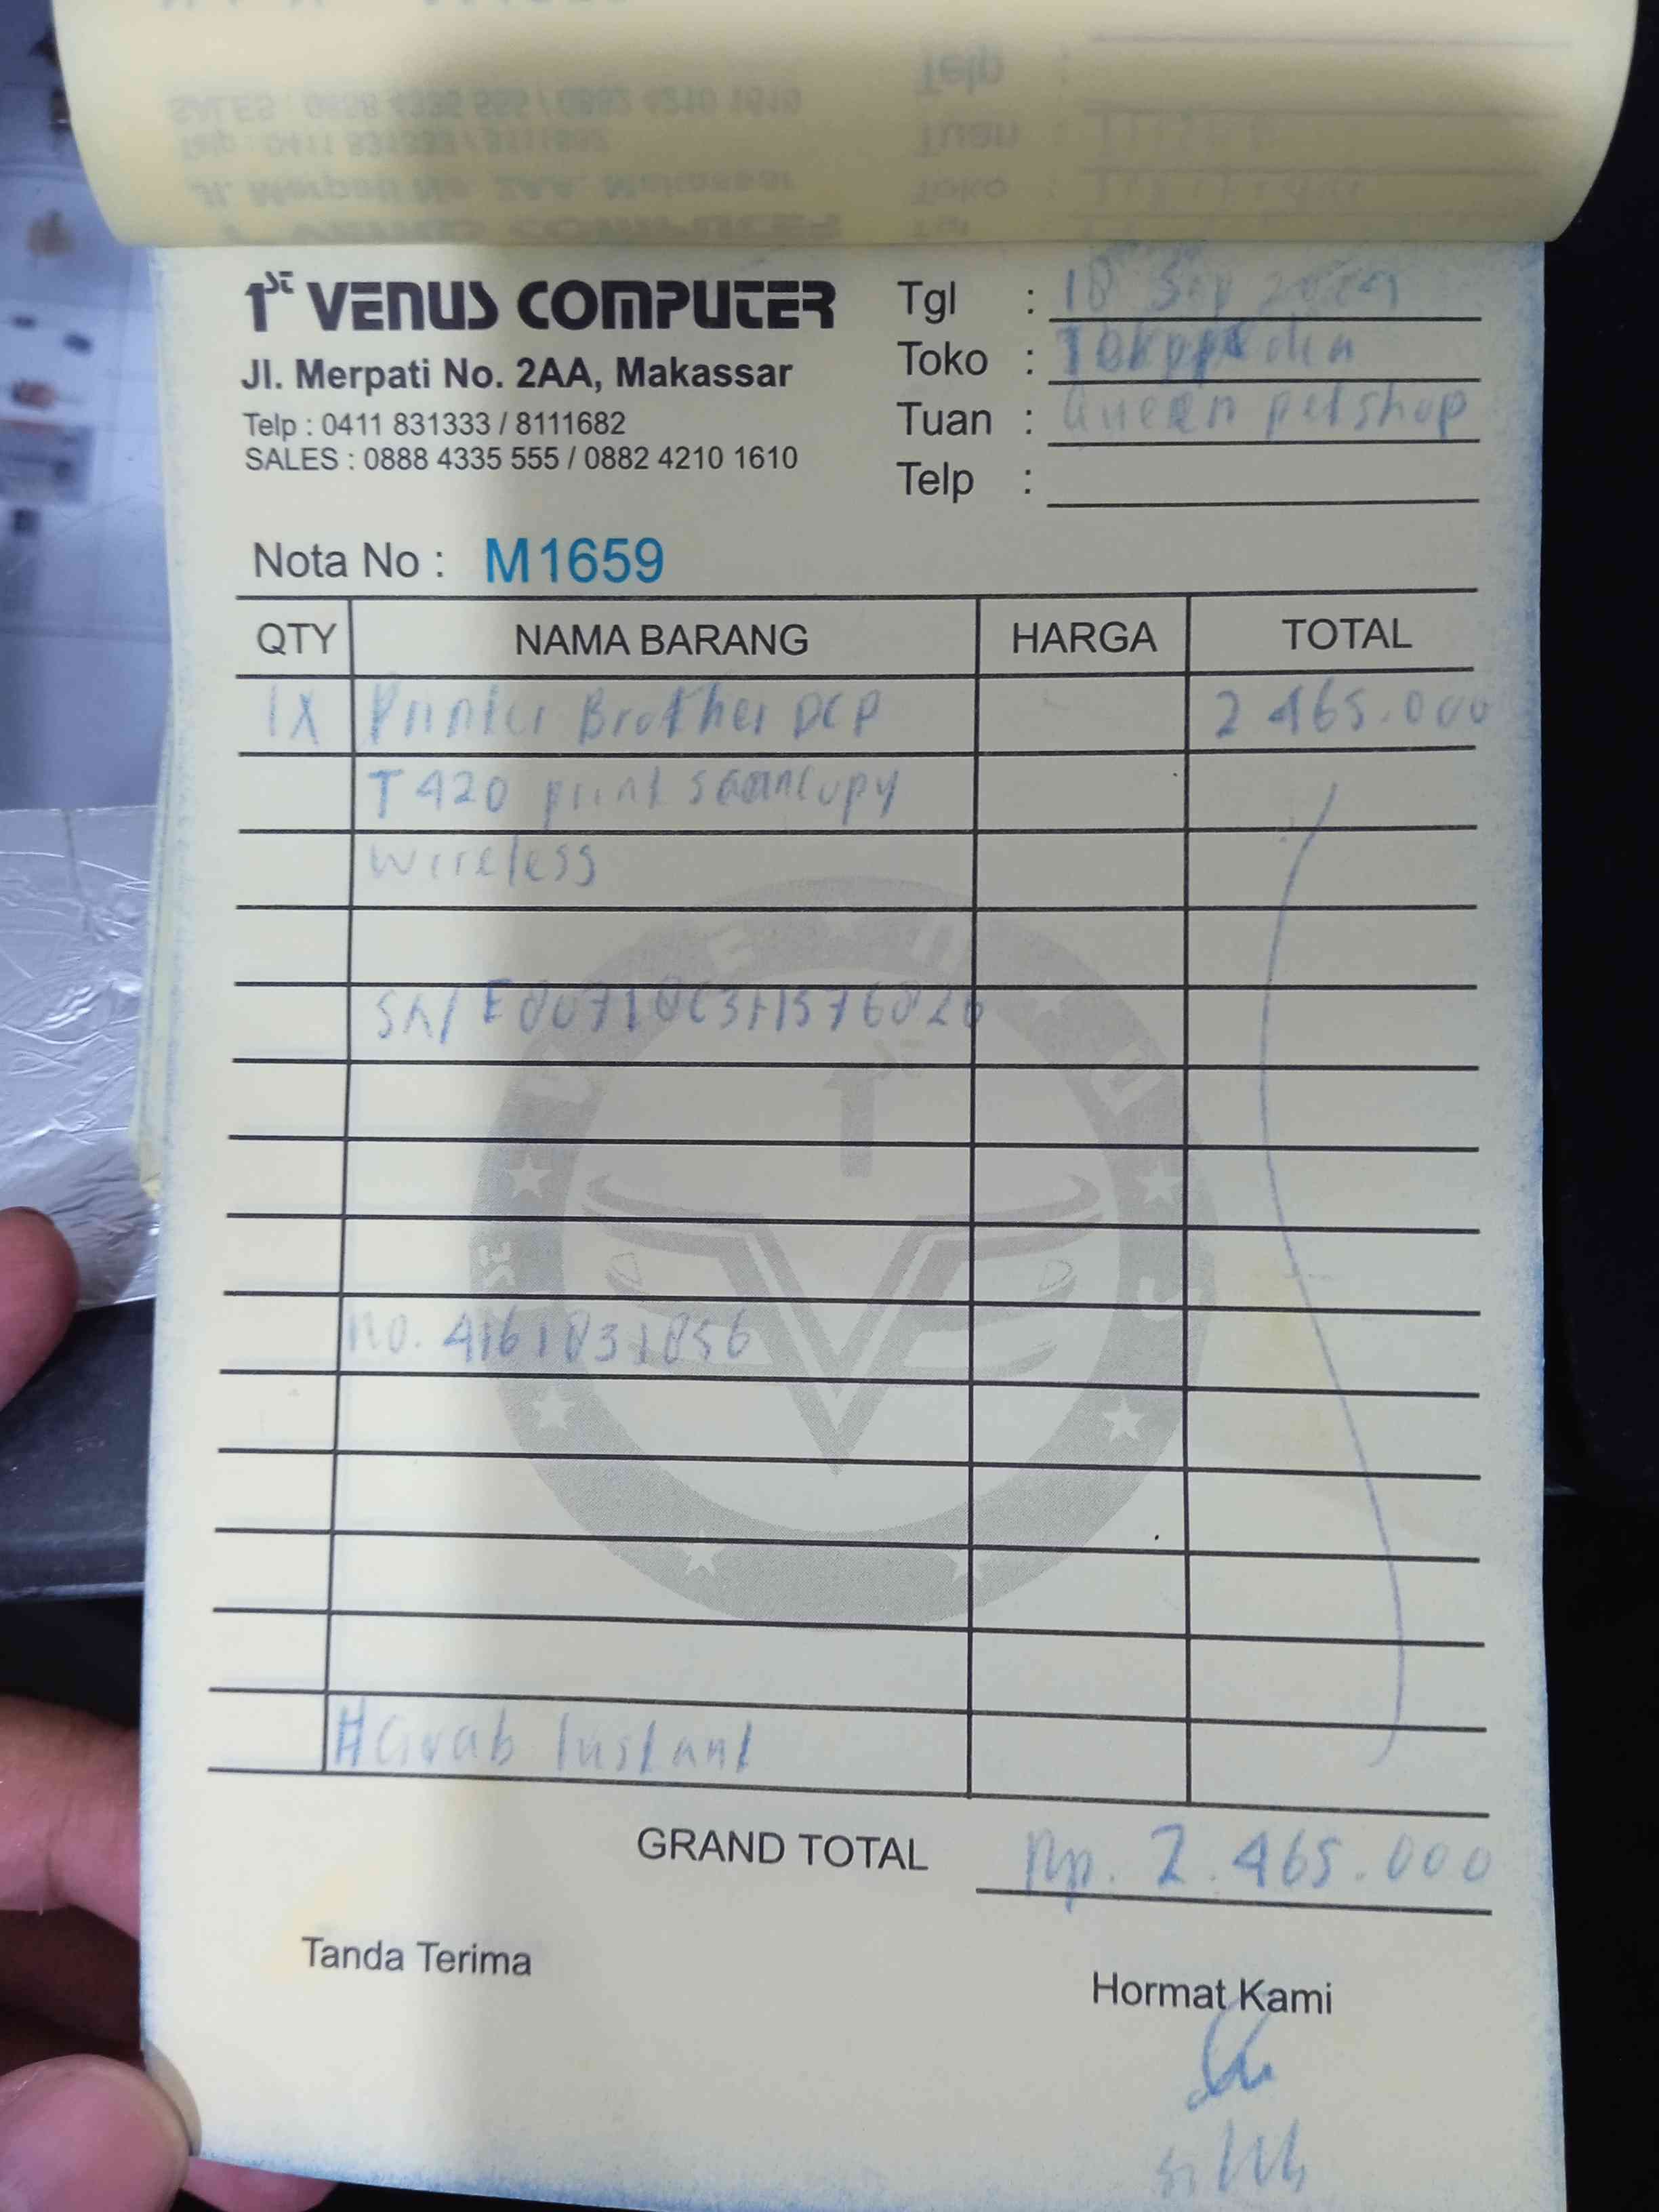 1st VENUS COMPUTER
Jl. Merpati No. 2AA, Makassar
Telp : 0411 831333 / 8111682
SALES : 0888 4335 555 / 0882 4210 1610
Tgl : 18 Sep 2024
Toko :
Tuan : Queen petshop
Telp :
Nota No : M1659
QTY NAMA BARANG HARGA TOTAL
1X Printer Brother DCP 2.465.000
T420 print scan copy
wireless
SN/ E80710C3H576026
no. 4161831856
# Grab Instant
GRAND TOTAL Rp. 2.465.000
Tanda Terima
Hormat Kami